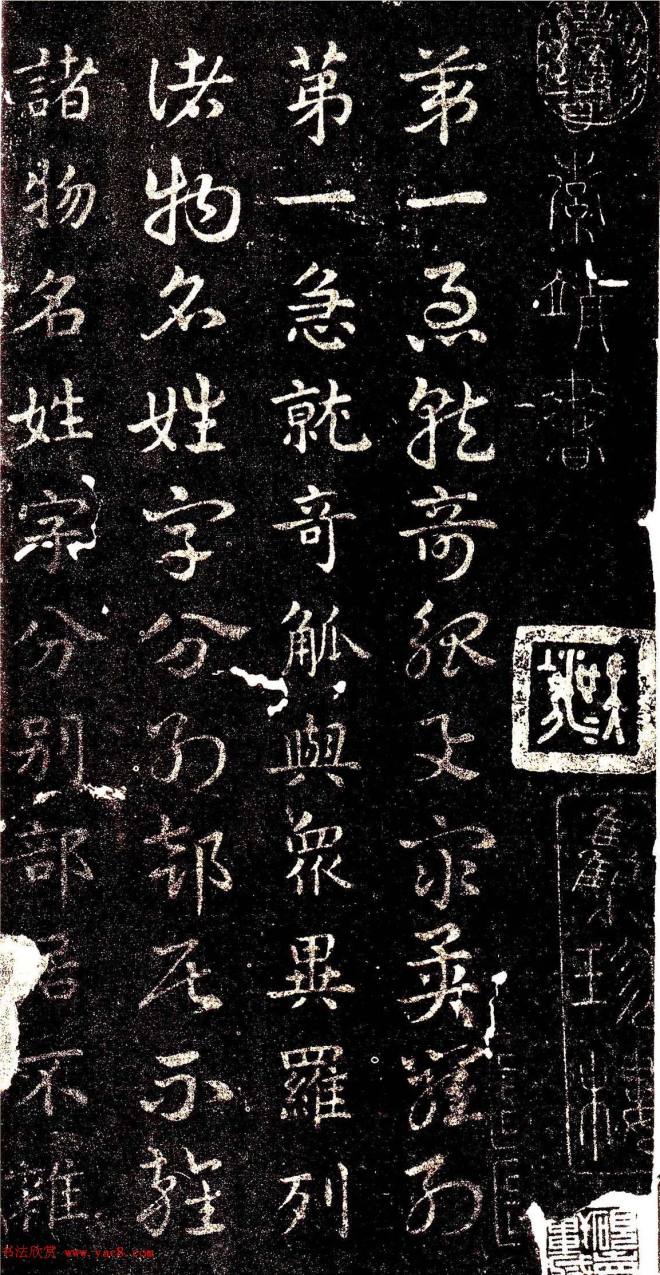 索靖書
第一急就奇觚与衆異羅列
第一急就奇觚與衆異羅列
诸物名姓字分别部居不雜
諸物名姓字分别部居不雜
书法欣赏 www.yac8.com